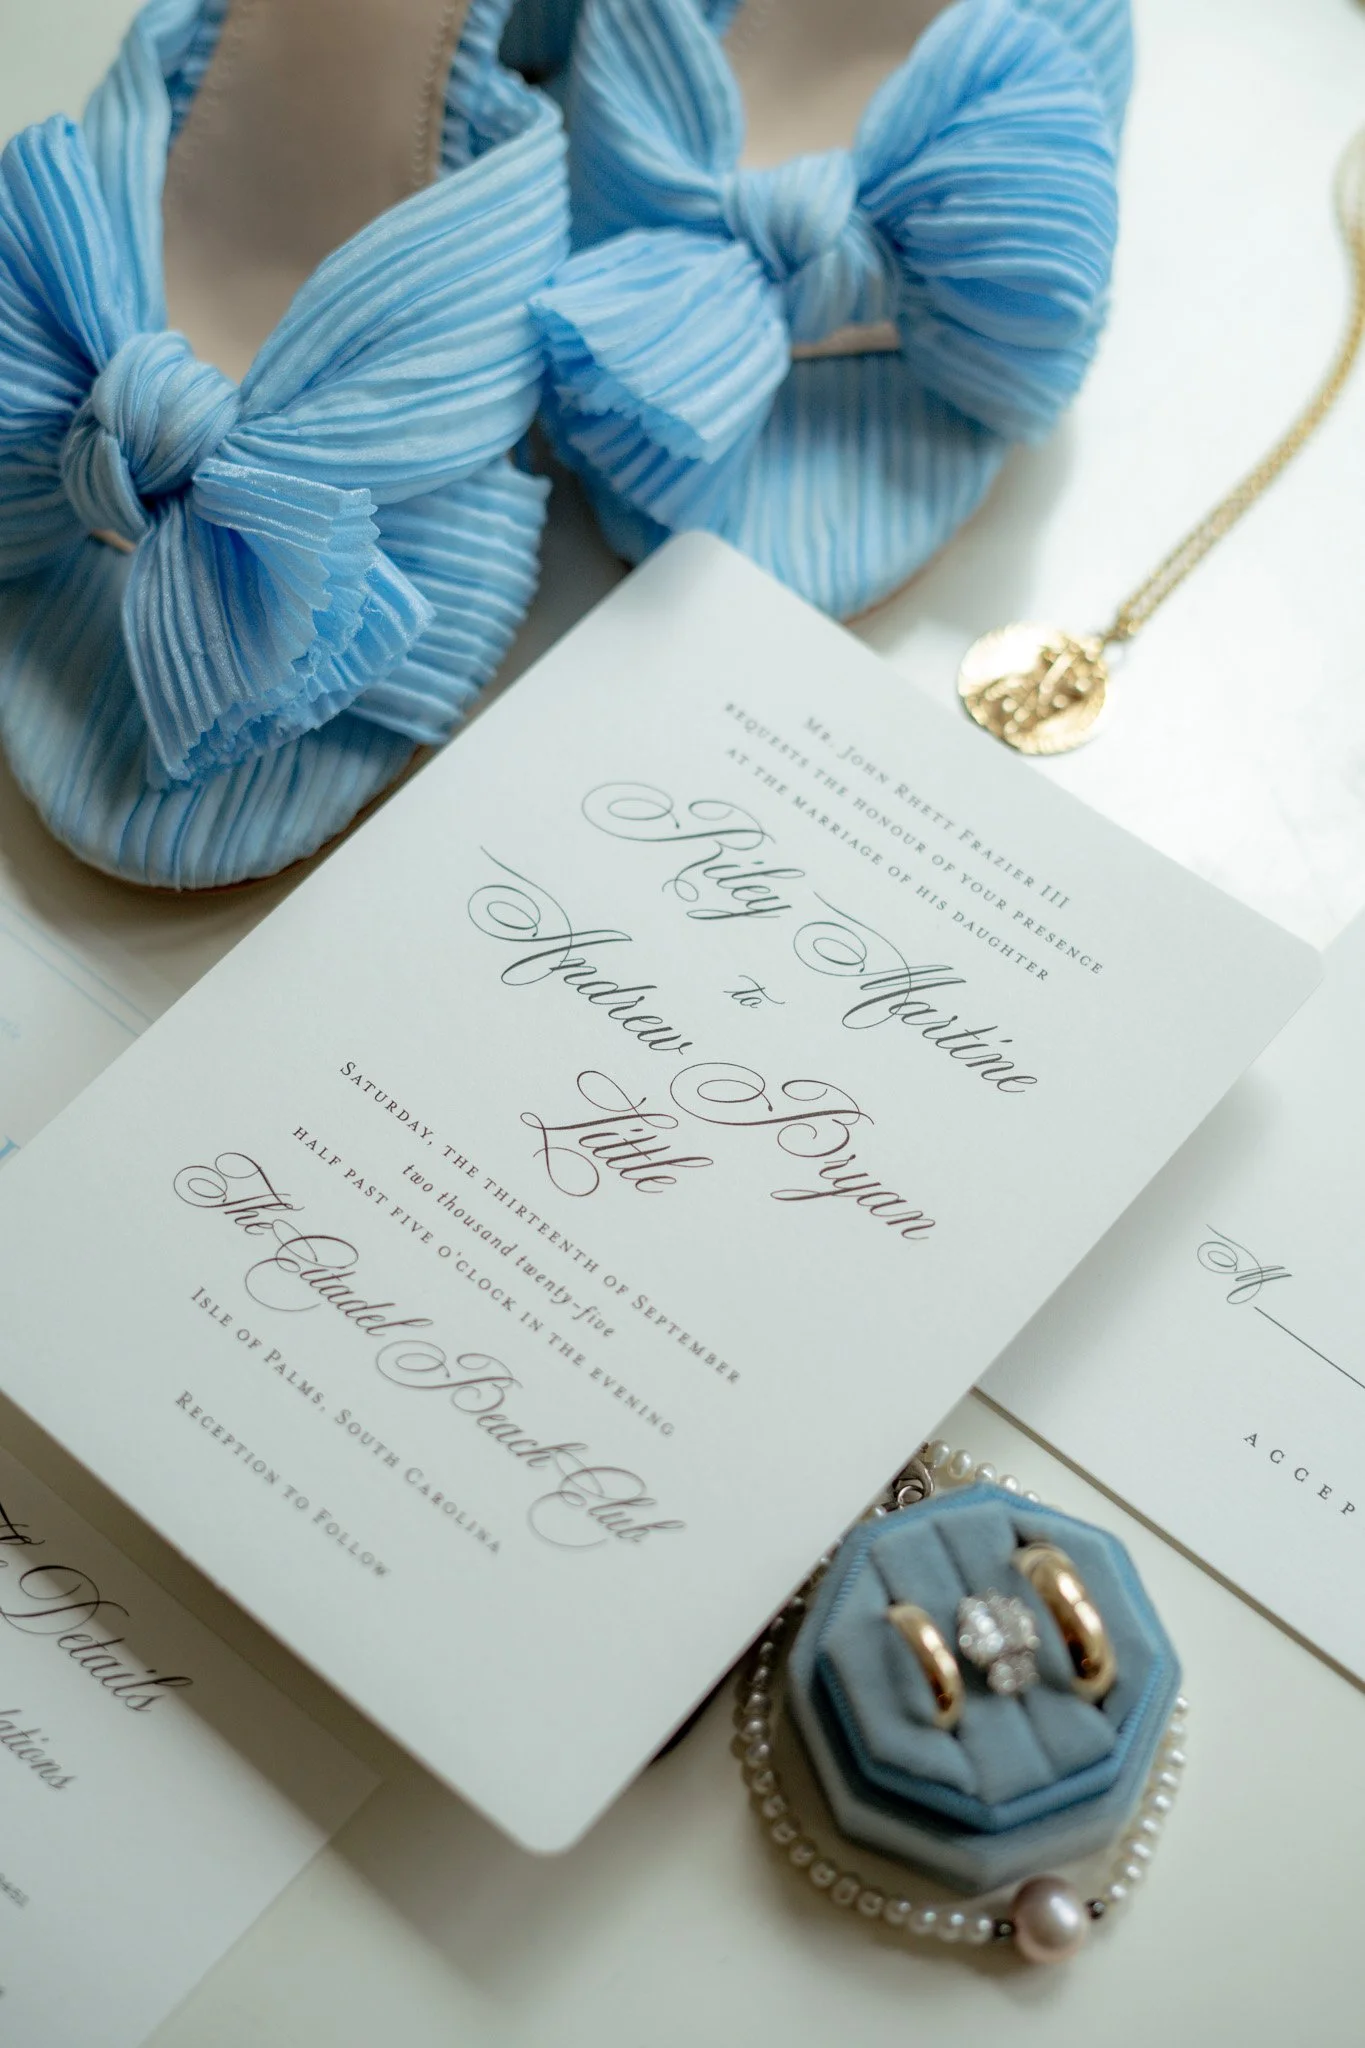 Mr. John Rhett Frazier III
requests the honour of your presence
at the marriage of his daughter
Riley Martine
to
Andrew Bryan
Little
Saturday, the thirteenth of September
two thousand twenty-five
half past five o'clock in the evening
The Citadel Beach Club
Isle of Palms, South Carolina
Reception to Follow
M
ACCEP
Details